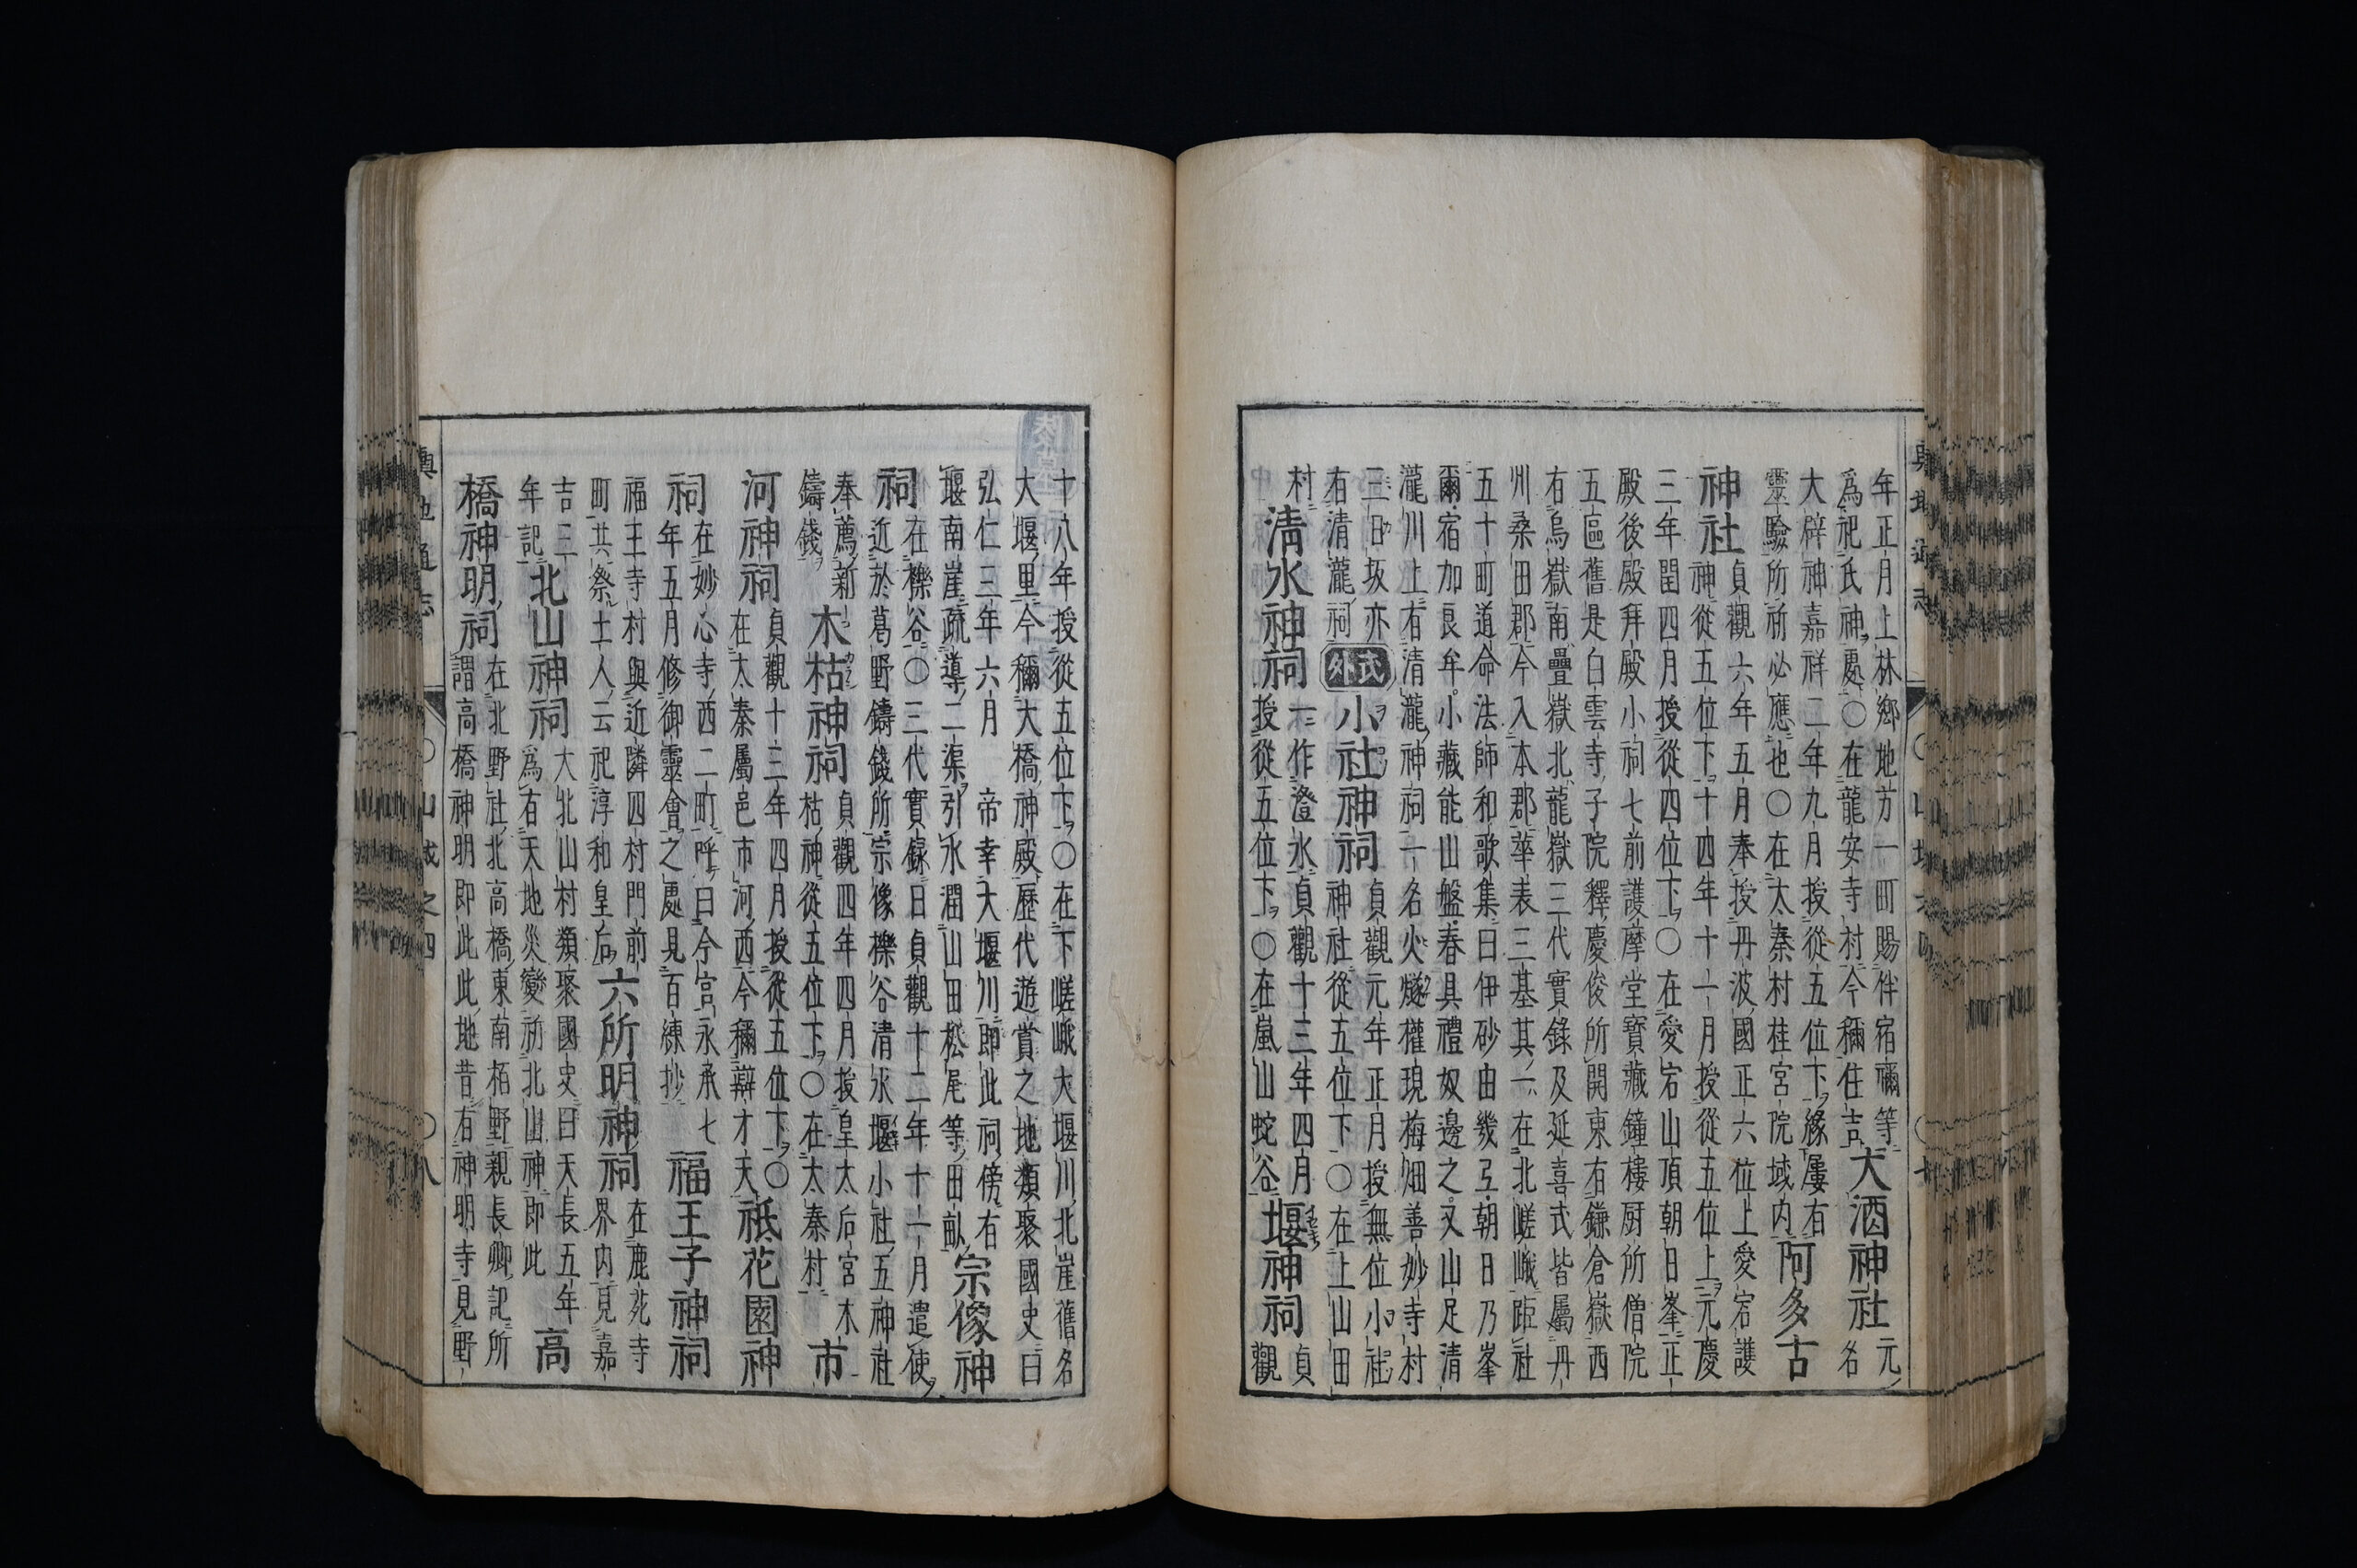 年正月上林鄉地方一町賜伴宿禰等
爲祀氏神處○在龍安寺村今稱住吉
大酒神社
元
名
大辟神嘉祥二年九月授從五位下緣屢有
靈驗所祈必應也○在太秦村桂宮院域内
阿多古
神社
貞觀六年五月奉授丹波國正六位上愛宕護
神從五位下十四年十一月授從五位上元慶
三年閏四月授從四位下○在愛宕山頂朝日峯正
殿後殿拜殿小祠七前護摩堂寶藏鐘樓厨所僧院
五區舊是白雲寺子院釋慶俊所開東有鎌倉嶽西
右烏嶽南疊嶽北龍嶽三代實錄及延喜式皆屬丹
州桑田郡今入本郡華表三基其一在北嵯峨距社
五十町道命法師和歌集曰伊砂由幾弖朝日乃峯
爾宿加良牟小藏能山盤春具禮奴邊之又山足清
瀧川上有清瀧神祠一名火燧權現梅畑善妙寺村
三日坂亦
右清瀧祠
式外
小社神祠
貞觀元年正月授無位小社
神社從五位下○在上山田
村
清水神祠
一作澄水貞觀十三年四月
授從五位下○在嵐山蛇谷
堰神祠
貞
觀
十八年授從五位下○在下嵯峨大堰川北崖舊名
大堰里今稱大橋神殿歷代遊賞之地類聚國史曰
弘仁三年六月 帝幸大堰川即此祠傍有
堰南崖疏導二渠引水潤山田松尾等田畝
宗像神
祠
在櫟谷○三代實錄曰貞觀十二年十一月遣使
近於葛野鑄錢所宗像櫟谷清水堰小社五神社
奉薦新
鑄錢
木枯神祠
貞觀四年四月授皇太后宮木
枯神從五位下○在太秦村
市
河神祠
貞觀十三年四月授從五位下○
在太秦屬邑市河西今稱辯才天
祇花園神
祠
在妙心寺西二町呼曰今宮永承七
年五月修御靈會之處見百練抄
福王子神祠
福王寺村與近隣四村門前
町共祭土人云祀淳和皇后
六所明神祠
在鹿苑寺
界内見嘉
吉三
年記
北山神祠
大北山村類聚國史曰天長五年
爲有天地災變祈北山神即此
高
橋神明祠
在北野社北高橋東南栢野親長卿記所
謂高橋神明即此此地昔有神明寺見野
輿地通志
○山城之四
○八